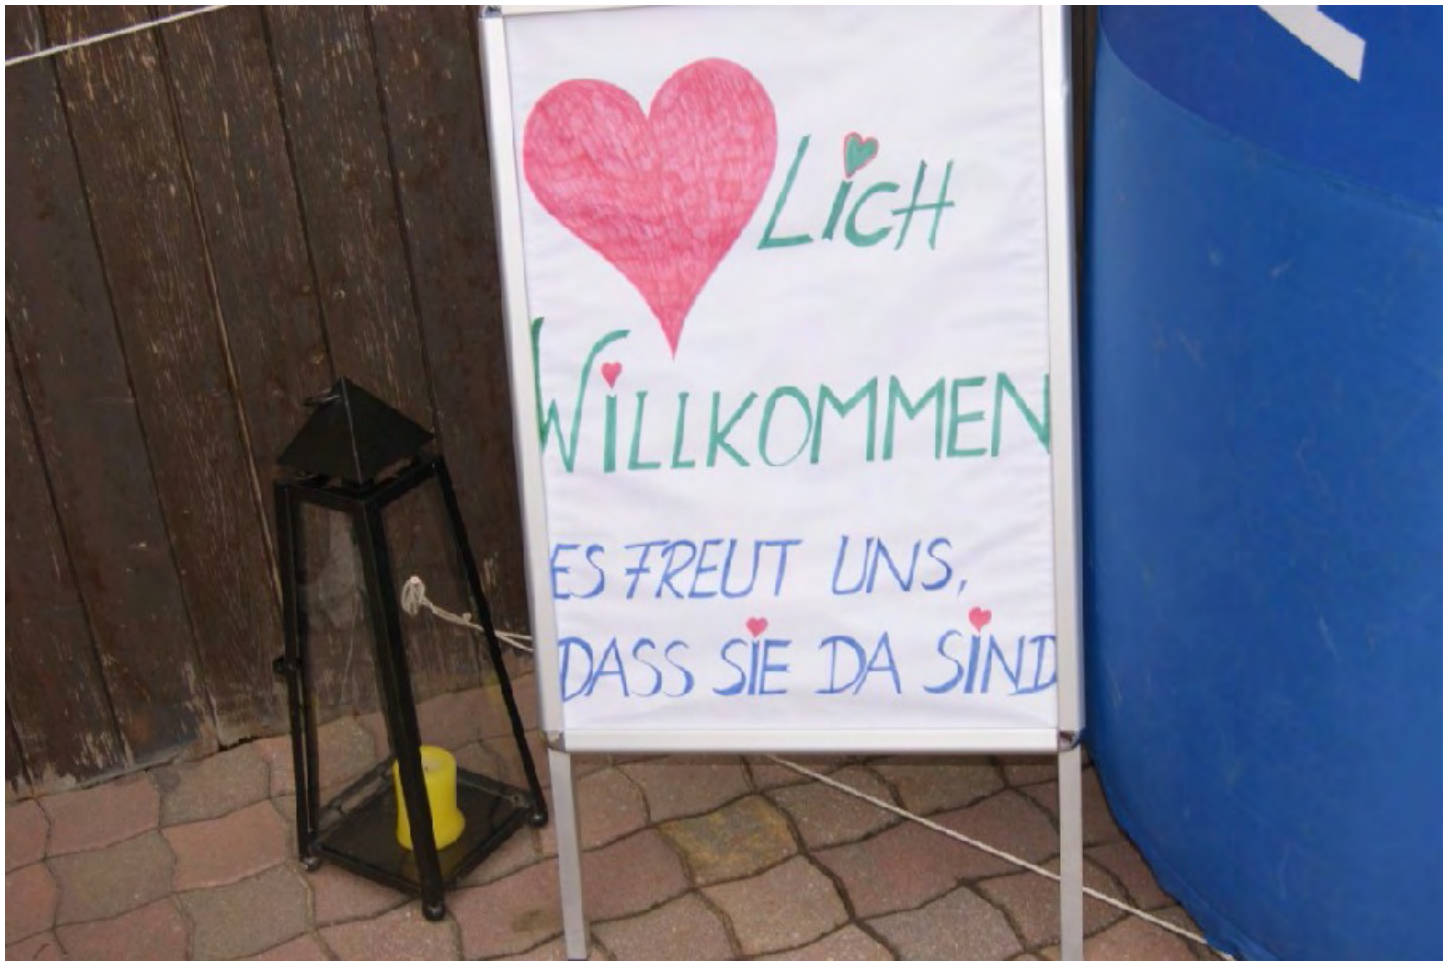 LICH
WILLKOMMEN
ES FREUT UNS,
DASS SIE DA SIND